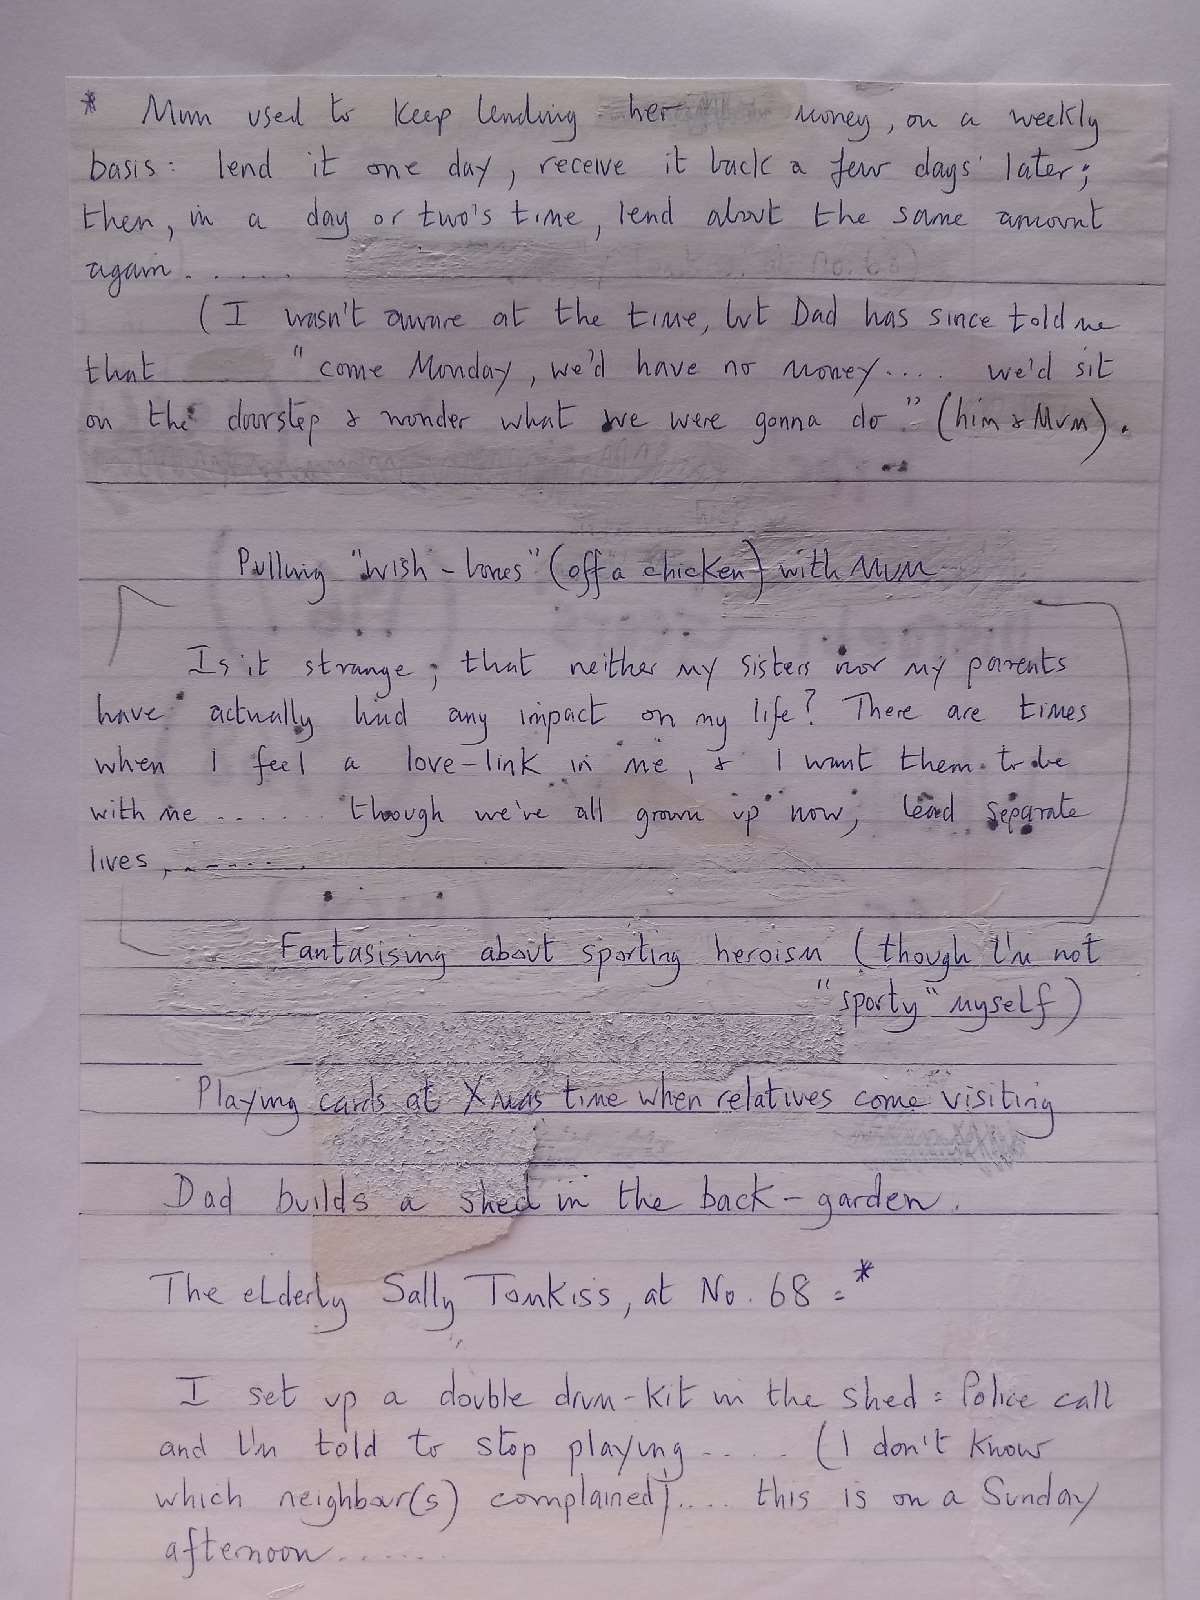 * Mum used to keep lending her money, on a weekly
basis: lend it one day, receive it back a few days' later;
then, in a day or two's time, lend about the same amount
again......
(I wasn't aware at the time, but Dad has since told me
that "come Monday, we'd have no money.... we'd sit
on the doorstep & wonder what we were gonna do" (him & Mum).
Pulling "wish-bones" (off a chicken) with Mum
Is it strange, that neither my sisters nor my parents
have actually had any impact on my life? There are times
when I feel a love-link in me, & I want them to be
with me .... though we've all grown up now, lead separate
lives,.......
Fantasising about sporting heroism (though I'm not
"sporty" myself)
Playing cards at Xmas time when relatives come visiting
Dad builds a shed in the back-garden.
The elderly Sally Tonkiss, at No. 68 :*
I set up a double drum-kit in the shed : Police call
and I'm told to stop playing ..... (I don't know
which neighbour(s) complained).... this is on a Sunday
afternoon.......